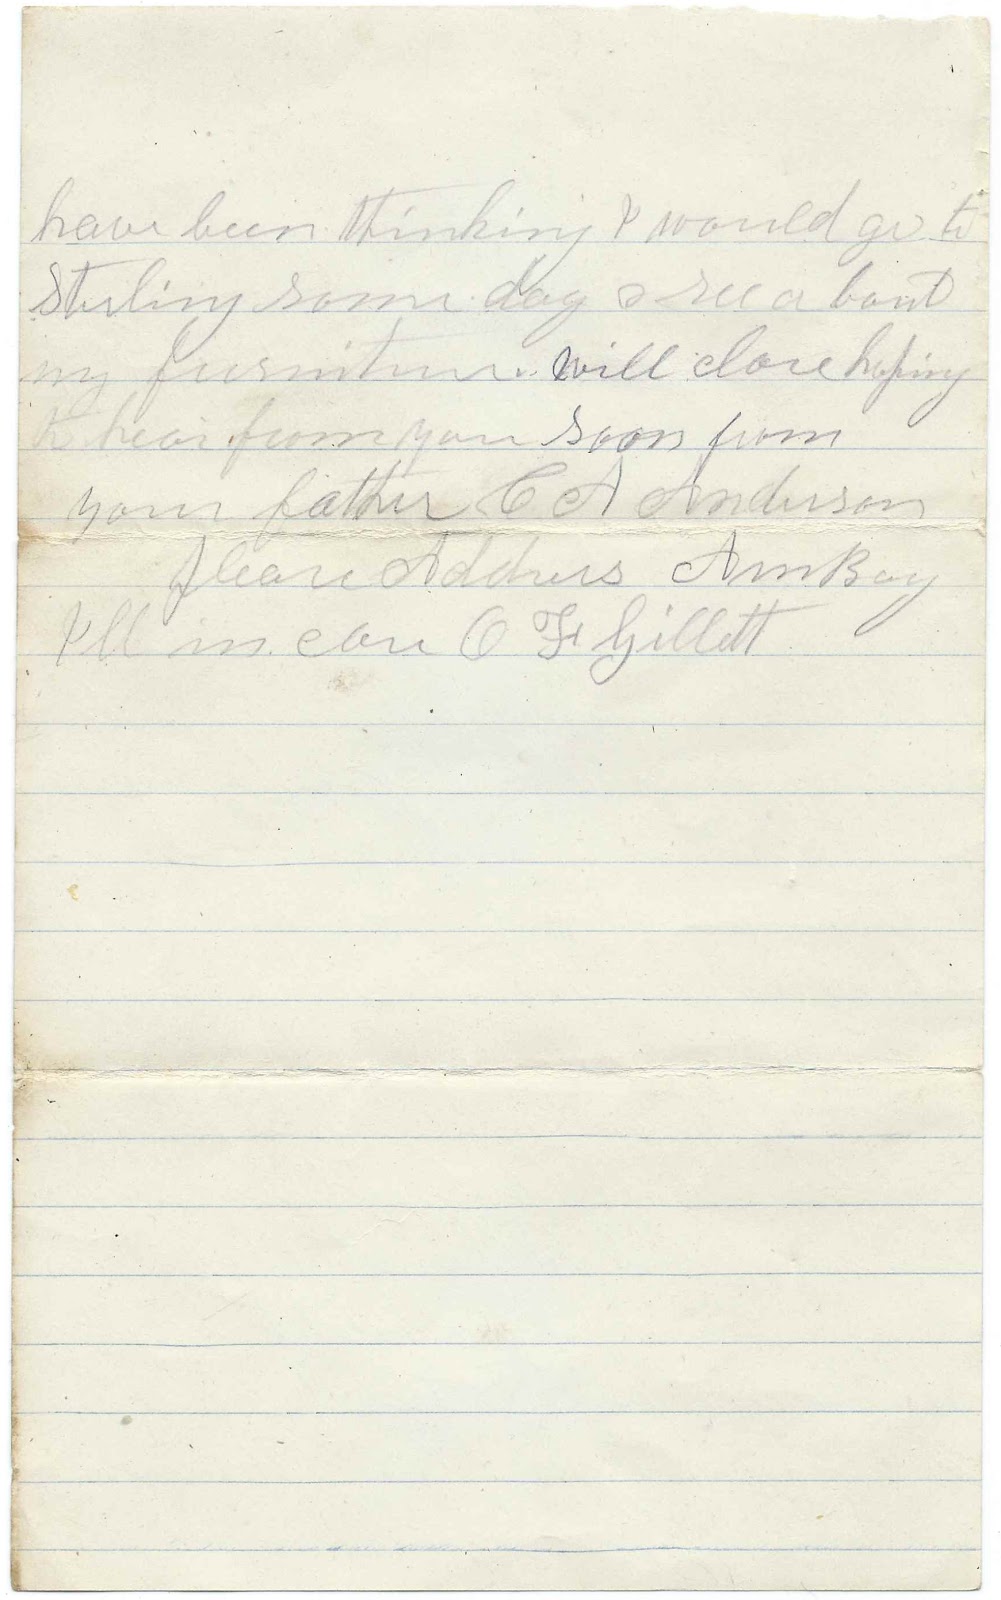 have been thinking I would go to
Sterling some day & see a bout
my furniture. will close hoping
to hear from you soon from
your father C A Anderson
Please Address AmBoy
Ill in care C F Gillett